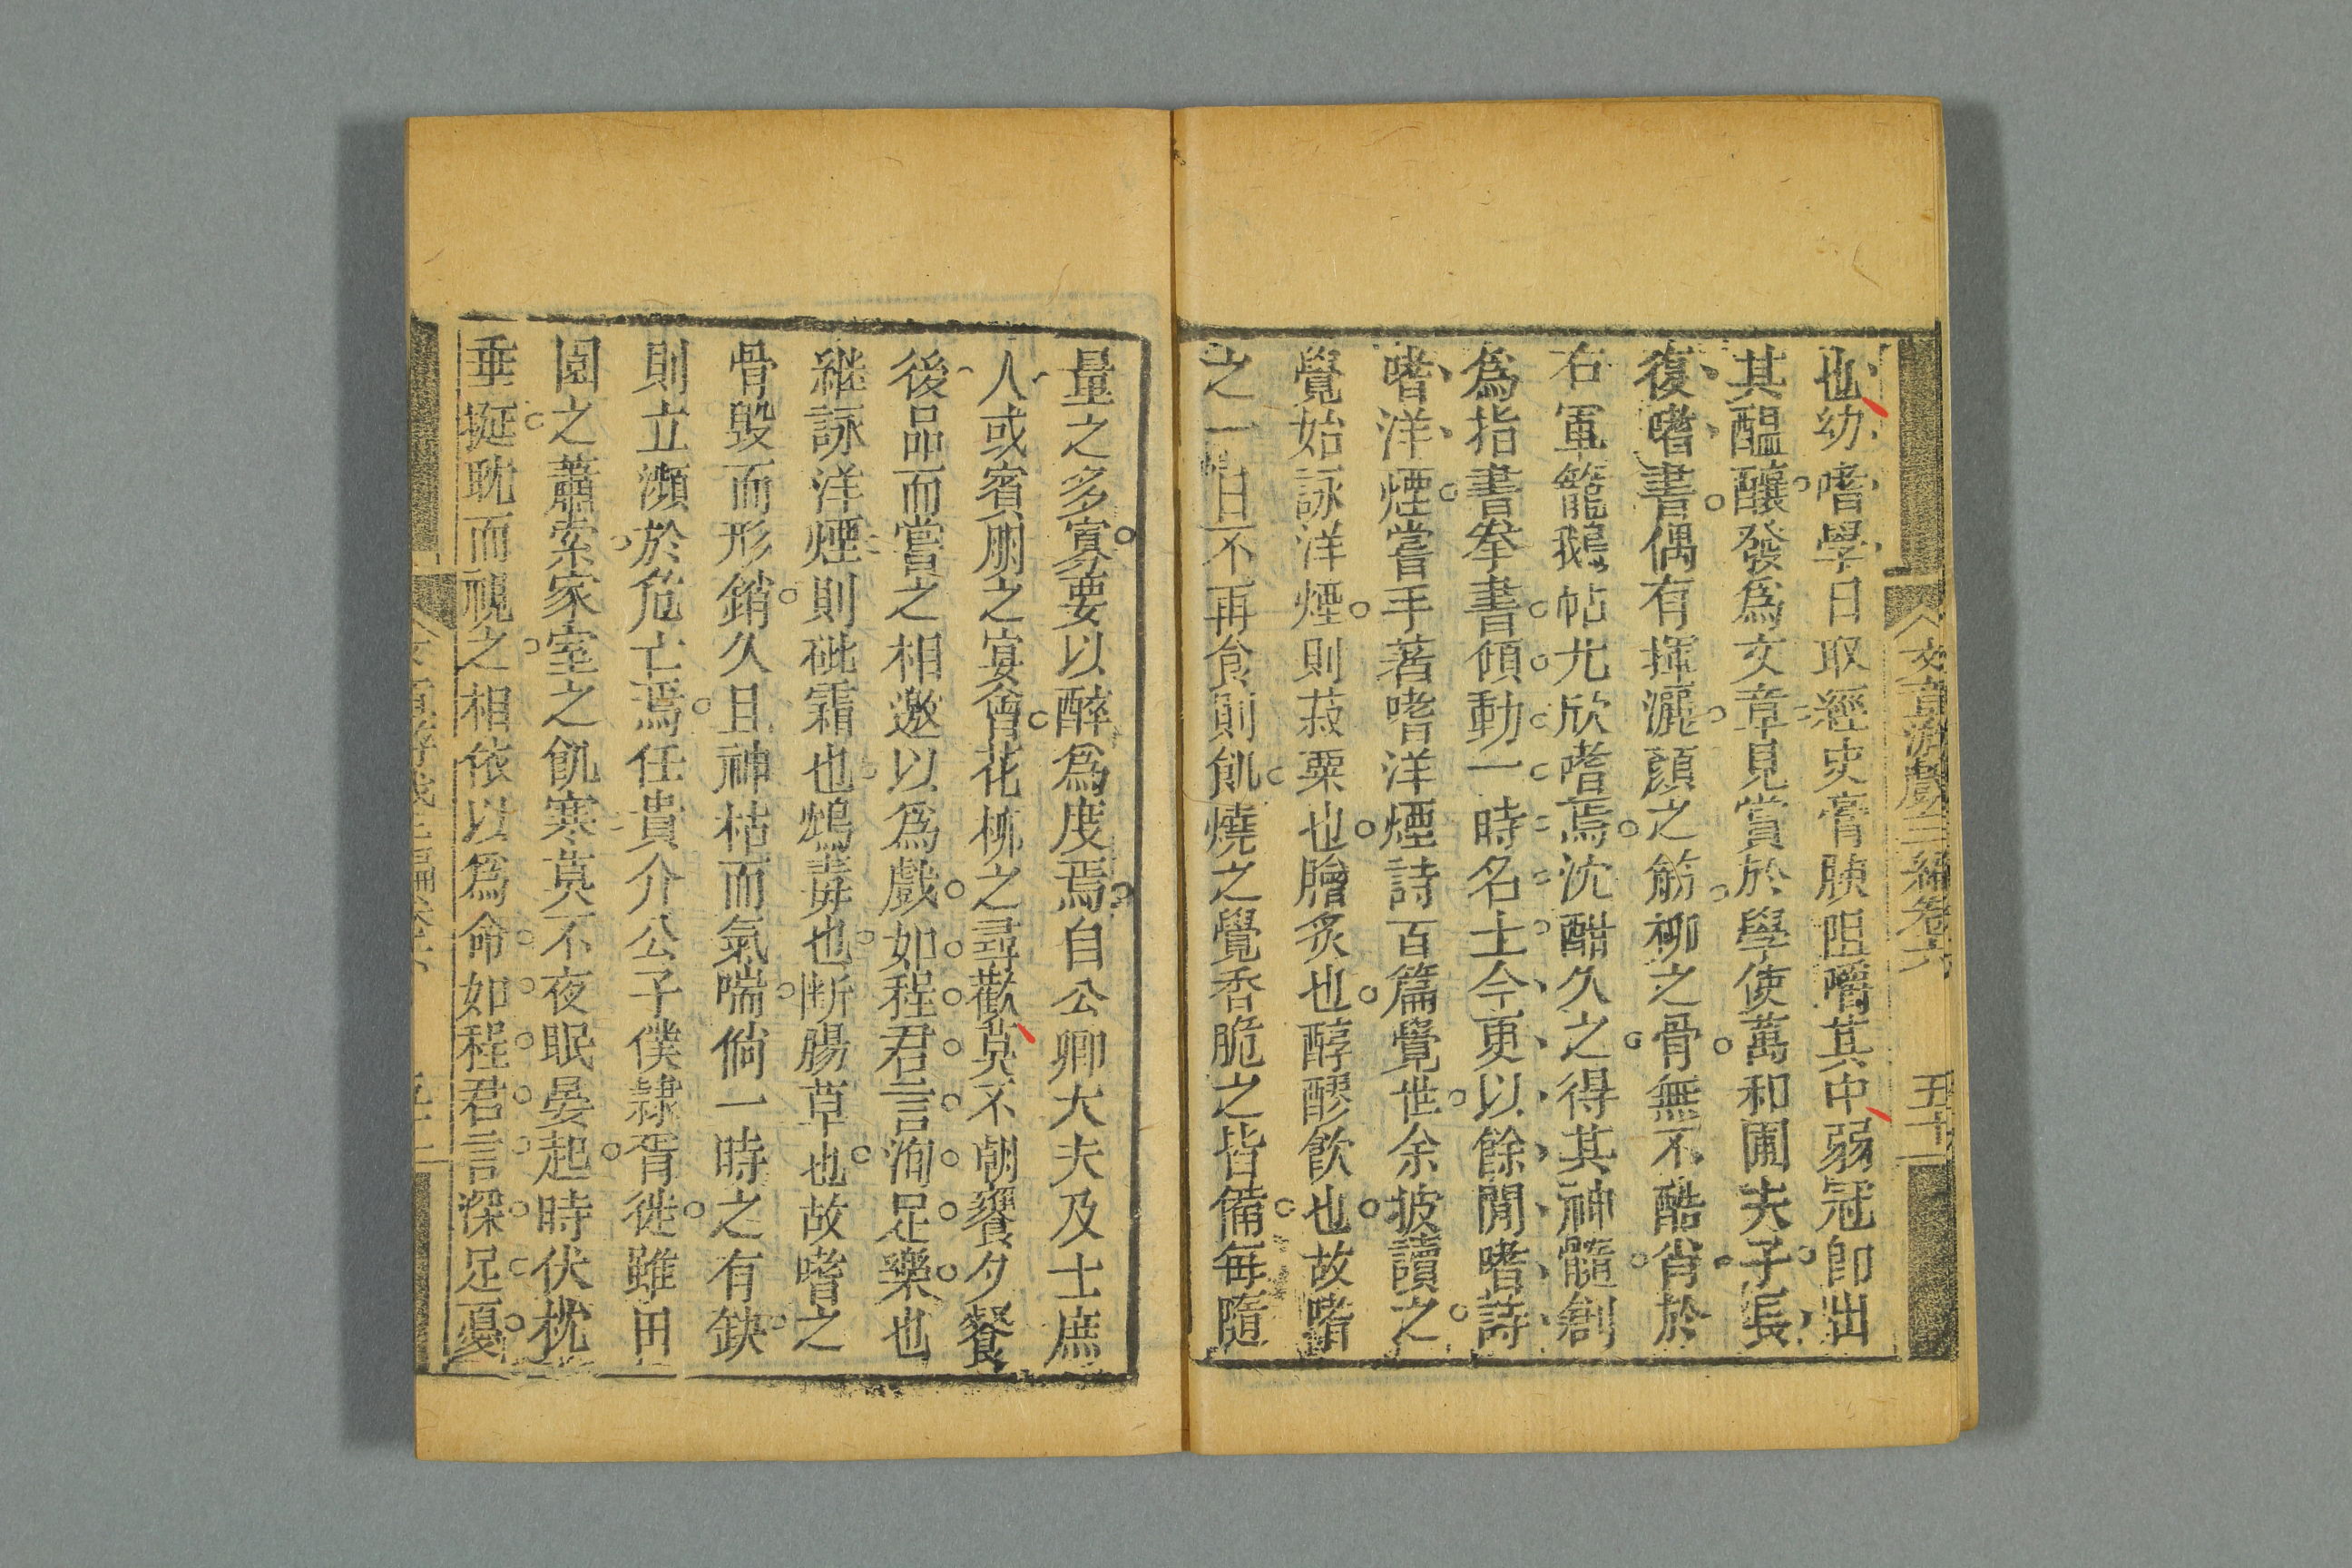 文章游戲三編卷六 五十一
也幼嗜學日取經史膏腴咀嚼其中弱冠卽出
其醞釀發為文章見賞於學使萬和圃夫子長
復嗜書偶有揮灑顏之筋柳之骨無不酷肖於
右軍籠鵝帖尤欣嗜焉沈酣久之得其神髓創
為指書拳書傾動一時名士今更以餘閒嗜詩
嗜洋煙嘗手著嗜洋煙詩百篇覺世余披讀之
覺始詠洋煙則菽粟也膾炙也醇醪飲也故嗜
之一日不再食則飢燒之覺香脆之皆備每隨
量之多寡要以醉為度焉自公卿大夫及士庶
人或賓朋之宴會花柳之尋歡莫不朝饔夕餐
後品而嘗之相邀以為戲如程君言洵足樂也
繼詠洋煙則砒霜也鴆毒也斷腸草也故嗜之
骨毀而形銷久且神枯而氣喘倘一時之有缺
則立瀕於危亡焉任貴介公子僕隸胥徒雖田
園之蕭索家室之飢寒莫不夜眠晏起時伏枕
垂涎耽而視之相依以為命如程君言深足憂